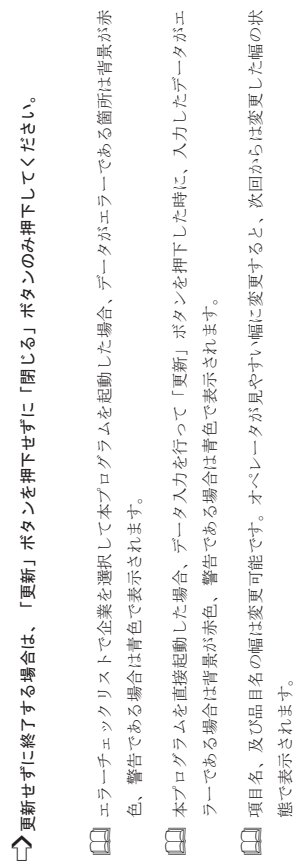 更新せずに終了する場合は、「更新」ボタンを押下せずに「閉じる」ボタンのみ押下してください。
エラーチェックリストで企業を選択して本プログラムを起動した場合、データがエラーである箇所は背景が赤
色、警告である場合は青色で表示されます。
本プログラムを直接起動した場合、データ入力を行って「更新」ボタンを押下した時に、入力したデータがエ
ラーである場合は背景が赤色、警告である場合は青色で表示されます。
項目名、及び品目名の幅は変更可能です。オペレータが見やすい幅に変更すると、次回からは変更した幅の状
態で表示されます。